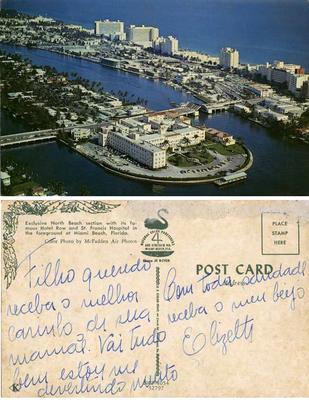 Exclusive North Beach section with its fa-
mous Hotel Row and St. Francis Hospital in
the foreground at Miami Beach, Florida.
Color Photo by McFadden Air Photos
PLACE
STAMP
HERE
POST CARD
Address
Filho querido
receba o melhor
carinho de sua
mamãe. Vai tudo
bem estou me
divertindo muito
Com toda saudade
receba o meu beijo
Elizeth
K